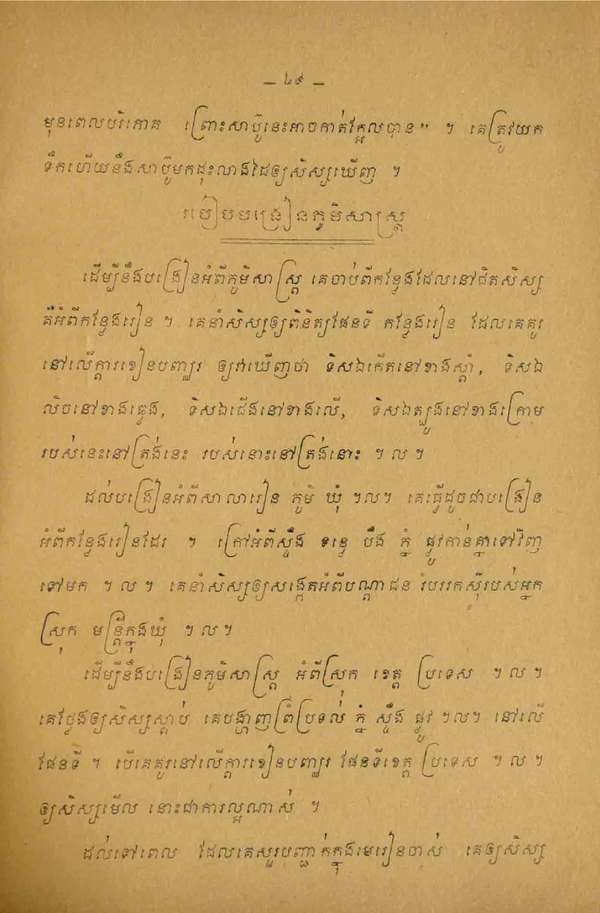 _ ៤៩ _
មុនពេលបរិភោគ ព្រោះសាប៊ូនេះអាចកាត់ក្អែលបាន” ។ គេត្រូវយក
ទឹកហើយនឹងសាប៊ូមកដុះលាងដៃឲ្យសិស្សឃើញ ។
របៀបបង្រៀនភូមិសាស្ត្រ
ដើម្បីនឹងបង្រៀនអំពីភូមិសាស្ត្រ គេចាប់ពីកន្លែងដែលនៅជិតសិស្ស
គឺអំពីកន្លែងរៀន ។ គេនាំសិស្សឲ្យពិនិត្យផែនទី កន្លែងរៀន ដែលគេគូរ
នៅលើក្តារខៀនបញ្ឈរ ឲ្យវាឃើញថា ទិសឯកើតនៅខាងស្តាំ, ទិសឯ
លិចនៅខាងឆ្វេង, ទិសឯជើងនៅខាងលើ, ទិសឯត្បូងនៅខាងក្រោម
របស់នេះនៅត្រង់នេះ របស់នោះនៅត្រង់នោះ ។ ល ។
ដល់បង្រៀនអំពីសាលារៀន ភូមិ ឃុំ ។ល។ គេធ្វើដូចជាបង្រៀន
អំពីកន្លែងរៀនដែរ ។ ក្រៅអំពីស្ទឹង ទន្លេ បឹង ភ្នំ ផ្លូវកាន់គ្នាទៅវិញ
ទៅមក ។ ល ។ គេនាំសិស្សឲ្យសង្កេតអំពីបណ្តាជន របររកស៊ីរបស់អ្នក
ស្រុក មន្ត្រីក្នុងឃុំ ។ ល ។
ដើម្បីនឹងបង្រៀនភូមិសាស្ត្រ អំពីស្រុក ខេត្ត ប្រទេស ។ ល ។
គេថ្លែងឲ្យសិស្សស្តាប់ គេបង្ហាញព្រំប្រទល់ ភ្នំ ស្ទឹង ផ្លូវ ។ល។ នៅលើ
ផែនទី ។ បើគេគូរនៅលើក្តារខៀនបញ្ឈរ ផែនទីខេត្ត ប្រទេស ។ ល ។
ឲ្យសិស្សមើល នោះជាការល្អណាស់ ។
ដល់ទៅពេល ដែលគេសួរបញ្ជាក់ក្នុងមេរៀនចាស់ គេឲ្យសិស្ស